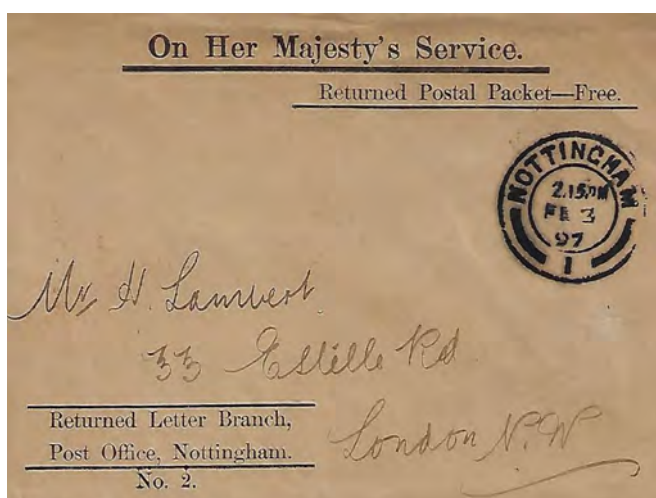 On Her Majesty's Service.
Returned Postal Packet—Free.
NOTTINGHAM
2.15PM
FE 3
97
1
Mr H. Lambert
33 Rd
London N.W
Returned Letter Branch,
Post Office, Nottingham.
No. 2.